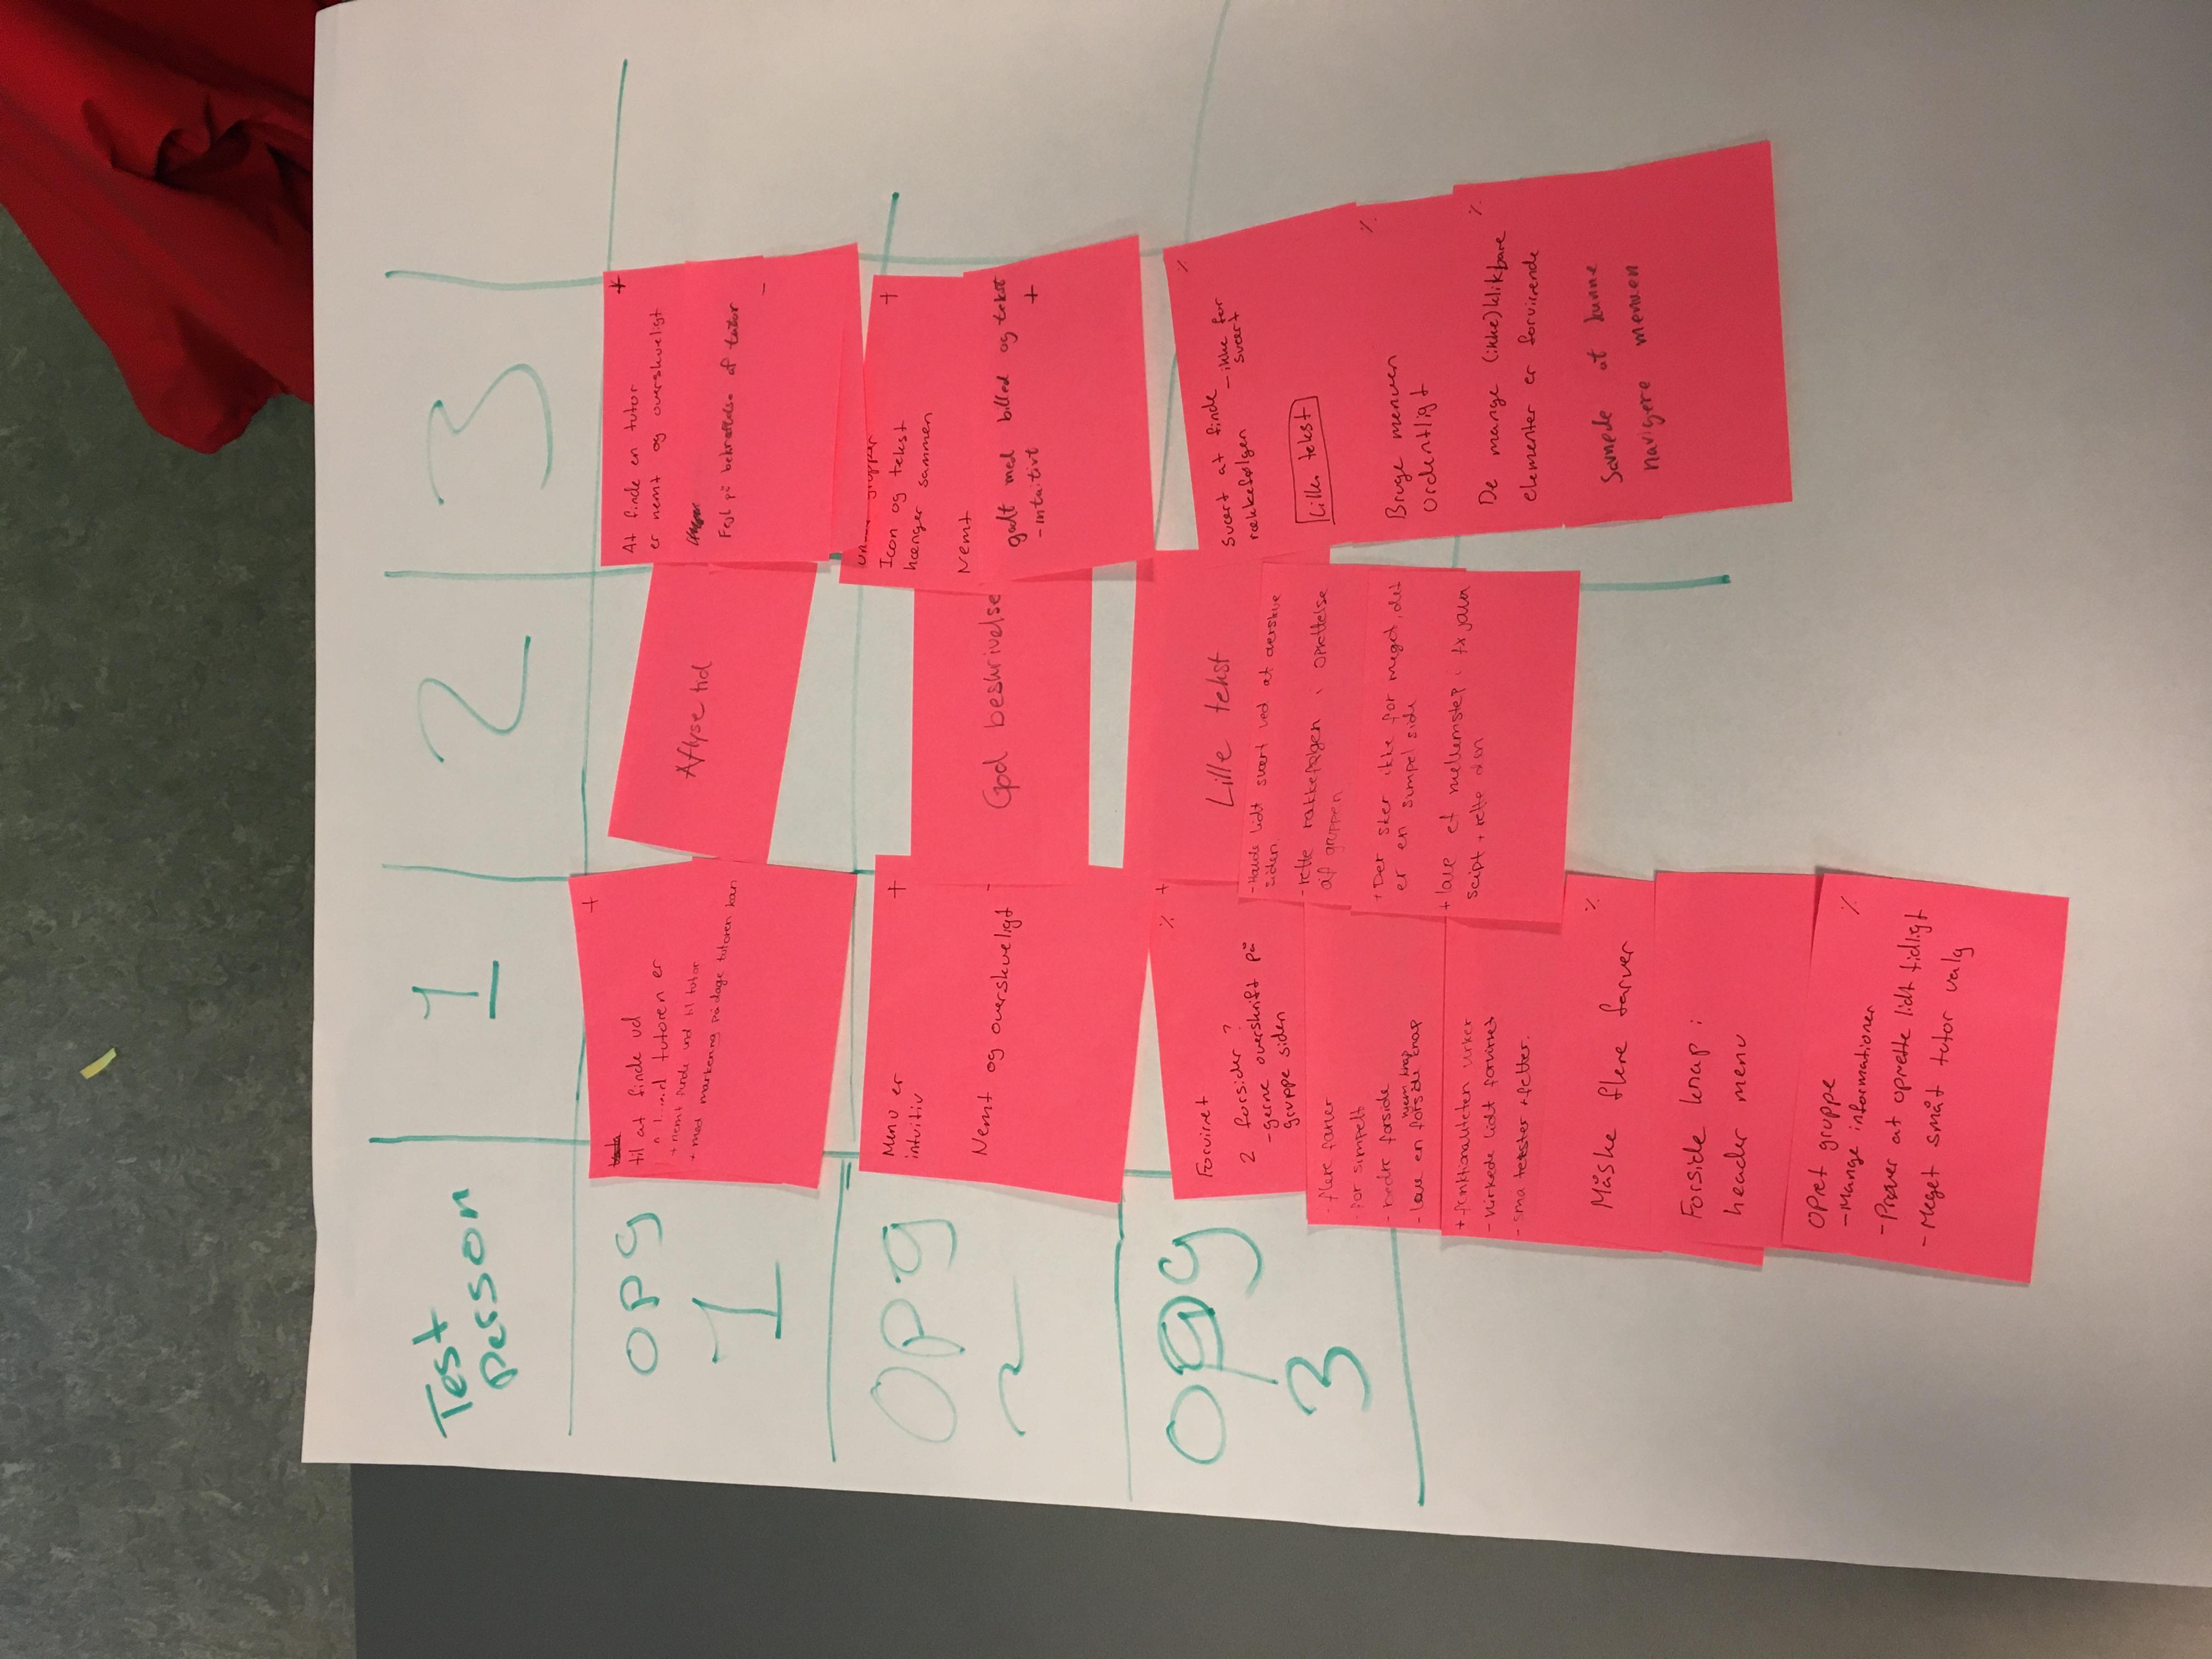 Test
person
1
2
3
opg
1
+
til at finde ud
tutoren er
+ nemt finde ind til tutor
+ med markering på dage tutoren kan
Aflyse tid
+
At finde en tutor
er nemt og overskueligt
-
Fejl på bekræftelse af tutor
opg
2
+
Menu er
intuitiv
-
Nemt og overskueligt
God beskrivelse
+
Icon og tekst
hænger sammen
Nemt
godt med billed og tekst
- intuitivt
+
opg
3
%
+
Forvirret
2 forsider?
- gerne overskrift på
gruppe siden
- flere farver
for simpelt
- bedre forside
hjem knap
- lave en forside knap
+ funktionaliteten virker
- virkede lidt forvirret
- små tekster + felter.
%
Måske flere farver
Forside knap i
header menu
%
Opret gruppe
- Mange informationer
- Prøver at oprette lidt tidligt
- Meget småt tutor valg
Lille tekst
- Havde lidt svært ved at overskue
siden
- rette rækkefølgen i oprettelse
af gruppen
+ Der sker ikke for meget, det
er en simpel side
+ lave et mellemstep i fx java
script + rette den
%
Svært at finde
rækkefølgen
- ikke for
svært
Lille tekst
%
Bruge menuen
ordentligt
%
De mange (ikke) klikbare
elementer er forvirrende
Savnede at kunne
navigere menuen